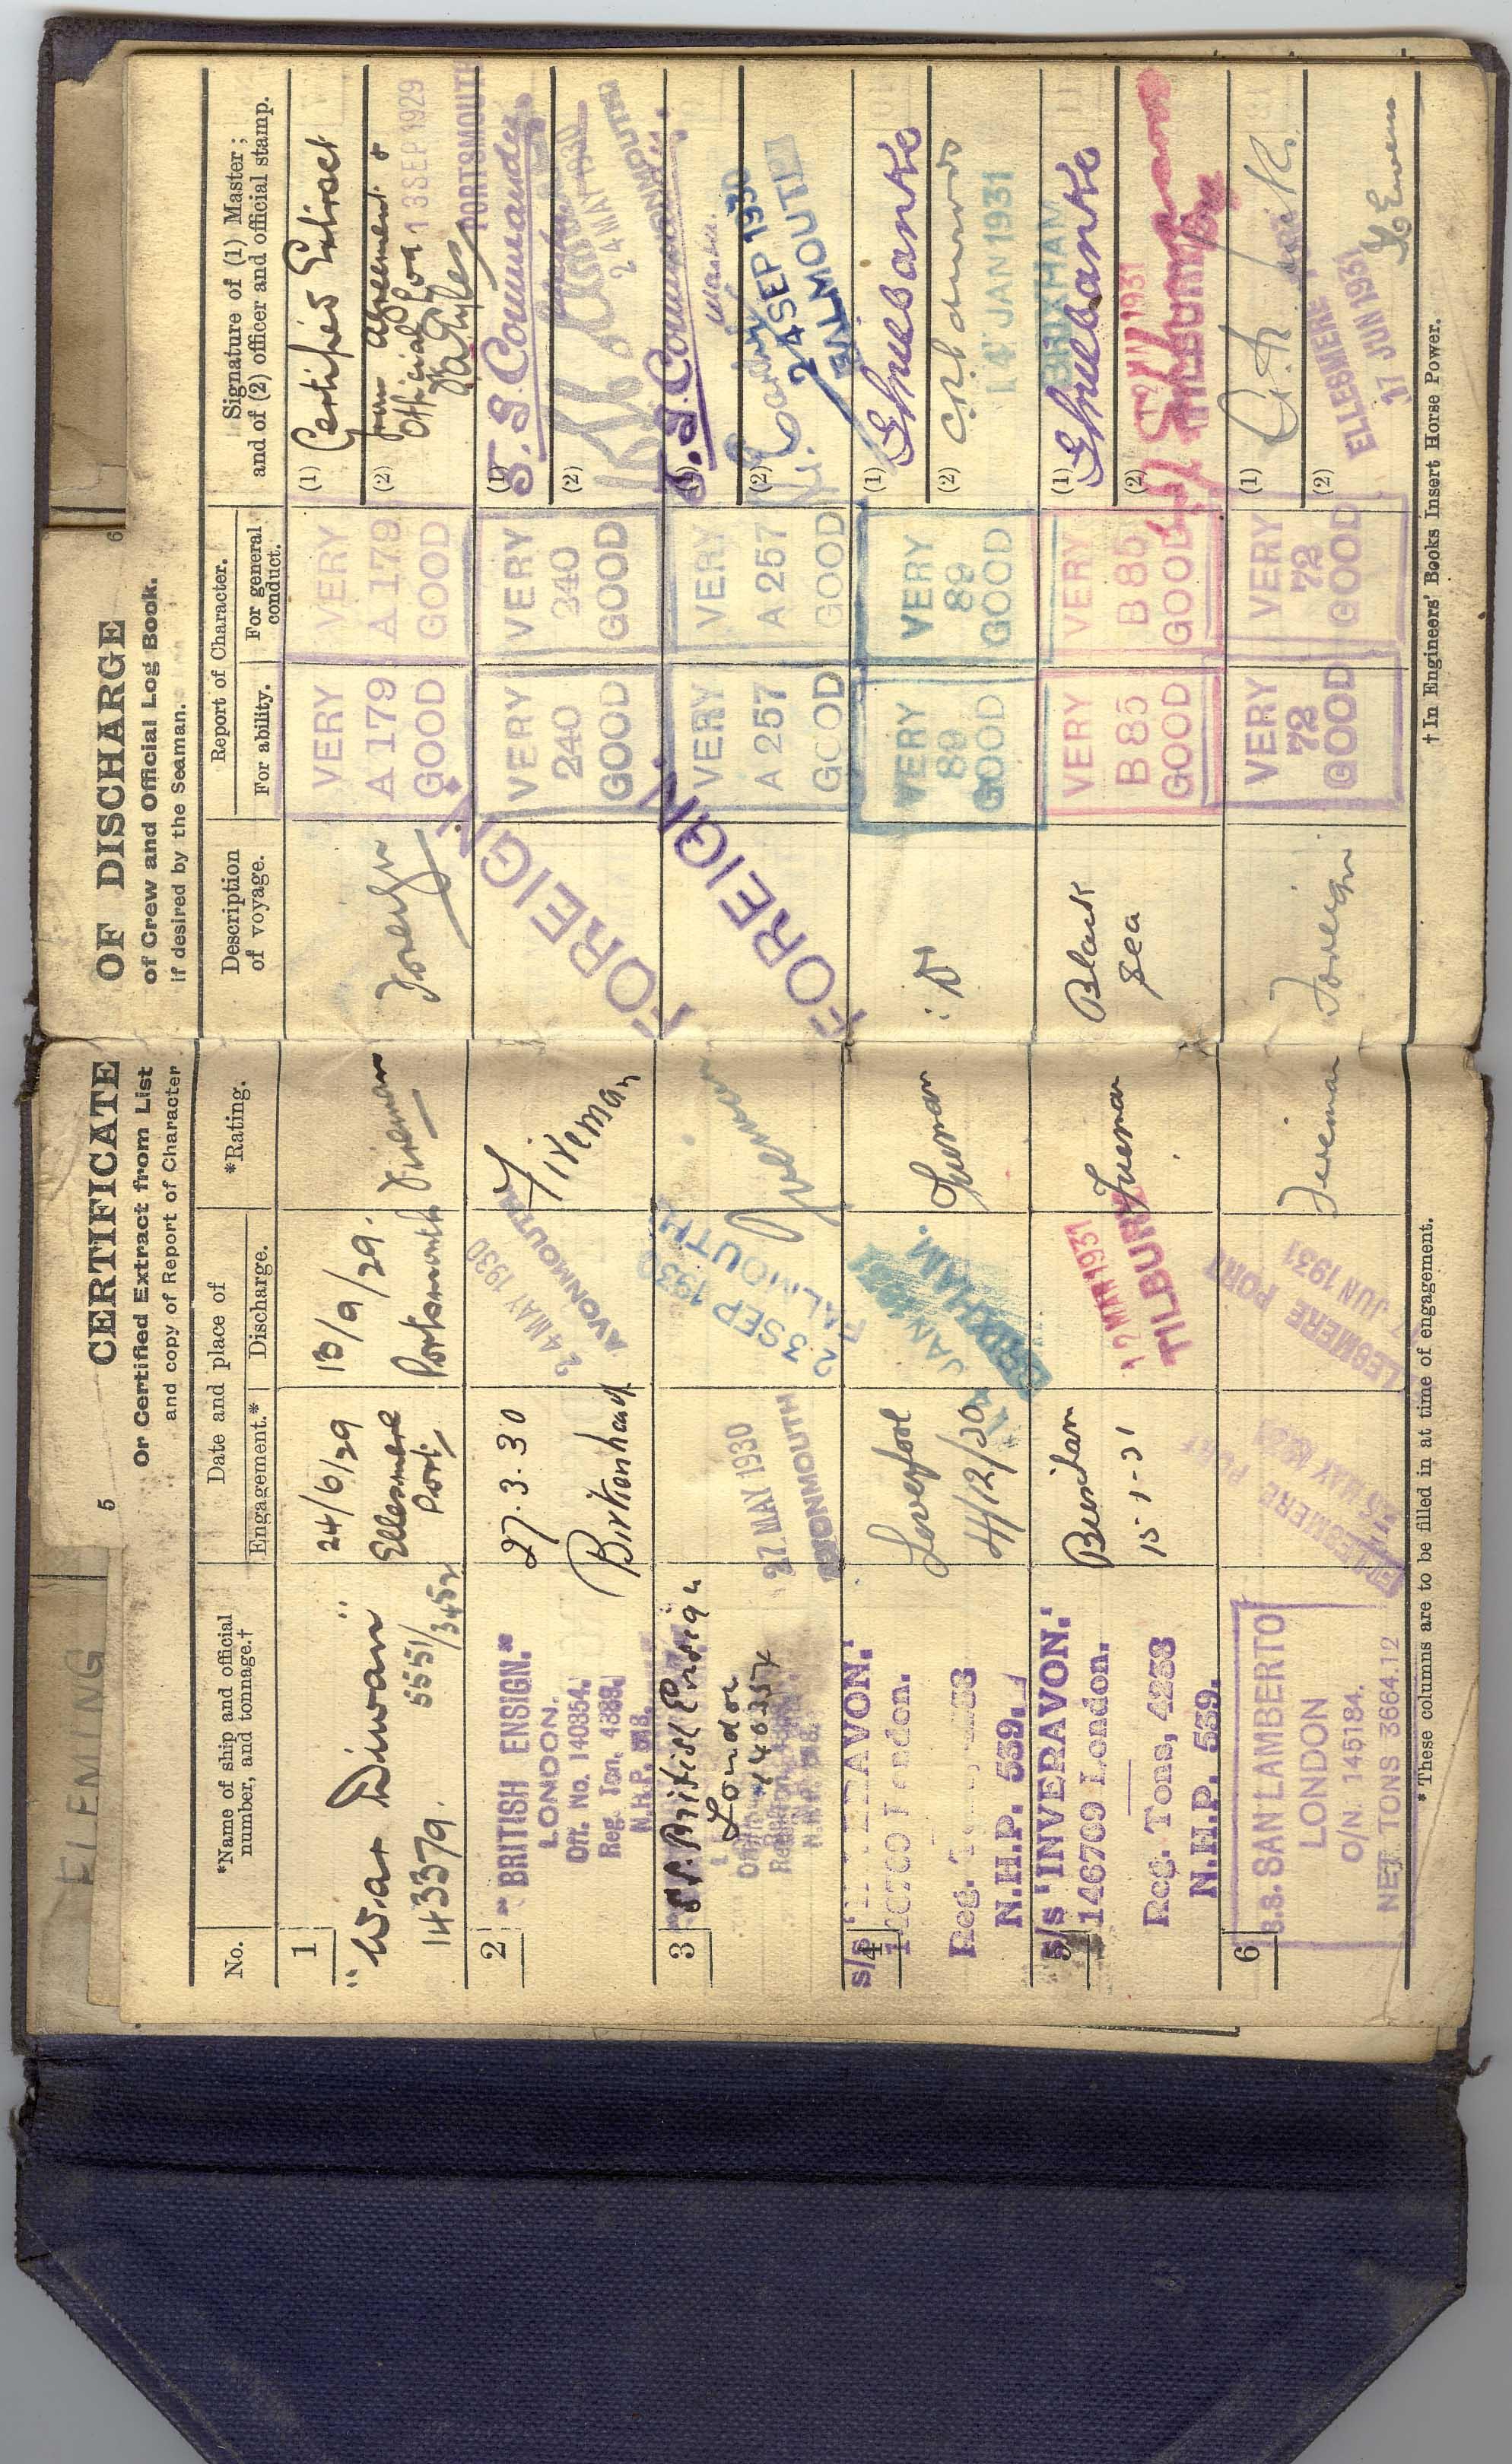 FLEMING
5
CERTIFICATE
OF DISCHARGE
6
Or Certified Extract from List
of Crew and Official Log Book.
and copy of Report of Character
if desired by the Seaman.
No.
*Name of ship and official
number, and tonnage.†
Date and place of
Engagement.*
Discharge.
*Rating.
Description
of voyage.
Report of Character.
For ability.
For general
conduct.
Signature of (1) Master;
and of (2) officer and official stamp.
1
"War Diwan"
143379. 5551/3452
24/6/29
Ellesmere
Port
13/9/29.
Portsmouth
Fireman
Foreign
VERY
A 179
GOOD
VERY
A 179
GOOD
(1) Certified Extract
(2) from agreement &
Official Log
13 SEP 1929
PORTSMOUTH
2
"BRITISH ENSIGN."
LONDON.
Off. No. 140354.
Reg. Ton. 4388.
N.H.P.
27.3.30
Birkenhead
24 MAY 1930
AVONMOUTH
Fireman
FOREIGN.
VERY
240
GOOD
VERY
240
GOOD
(1)
(2)
24 MAY 1930
AVONMOUTH
3
S.S. British Ensign
London
140354
27 MAY 1930
AVONMOUTH
23 SEP 1930
FALMOUTH
Fireman
FOREIGN.
VERY
A 257
GOOD
VERY
A 257
GOOD
(1)
(2)
24 SEP 1930
FALMOUTH
4
s/s 'INVERAVON.'
146709 London.
Reg. Tons, 4233
N.H.P. 539.
Liverpool
4/12/30
14 JAN 1931
BRIXHAM.
Fireman
VERY
89
GOOD
VERY
89
GOOD
(1)
(2)
14 JAN 1931
BRIXHAM
5
s/s 'INVERAVON.'
146709 London.
Reg. Tons, 4233
N.H.P. 539.
Brixham
15-1-31
12 MAR 1931
TILBURY
Fireman
Black
Sea
VERY
B 85
GOOD
VERY
B 85
GOOD
(1)
(2)
12 MAR 1931
TILBURY
6
S.S. SAN LAMBERTO
LONDON
O/N. 145184.
NET. TONS 3664.12
ELLESMERE PORT
MAY 1931
ELLESMERE PORT
JUN 1931
Fireman
Foreign
VERY
72
GOOD
VERY
72
GOOD
(1)
(2)
ELLESMERE
JUN 1931
*These columns are to be filled in at time of engagement.
†In Engineers' Books Insert Horse Power.